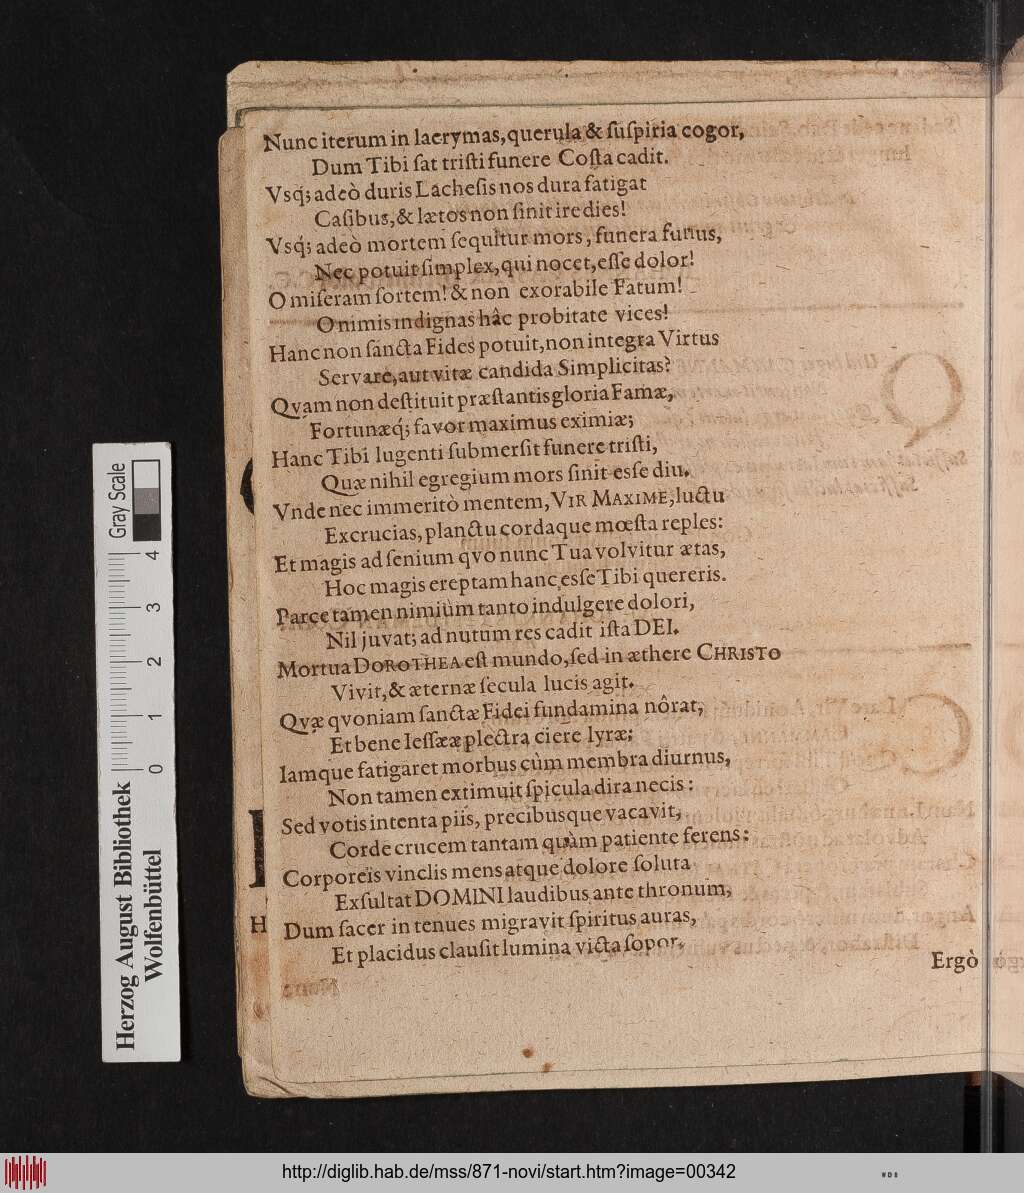 Nunc iterum in lacrymas, querula & ſuſpiria cogor,
Dum Tibi ſat triſti funere Coſta cadit.
Vsq́; adeò duris Lacheſis nos dura fatigat
Caſibus, & lætos non ſinit ire dies!
Vsq́; adeò mortem ſequitur mors, funera funus,
Nec potuit ſimplex, qui nocet, eſſe dolor!
O miſeram ſortem! & non exorabile Fatum!
O nimis indignas hâc probitate vices!
Hanc non ſancta Fides potuit, non integra Virtus
Servare, aut vitæ candida Simplicitas?
Qvam non deſtituit præſtantis gloria Famæ,
Fortunæq́; favor maximus eximiæ;
Hanc Tibi lugenti ſubmerſit funere triſti,
Quæ nihil egregium mors ſinit esſe diu.
Vnde nec immeritò mentem, VIR MAXIME, luctu
Excrucias, planctu cordaque mœſta reples:
Et magis ad ſenium qvo nunc Tua volvitur ætas,
Hoc magis ereptam hanc esſe Tibi quereris.
Parce tamen nimiùm tanto indulgere dolori,
Nil juvat; ad nutum res cadit iſta DEI.
Mortua DOROTHEA eſt mundo, ſed in æthere CHRISTO
Vivit, & æternæ ſecula lucis agit.
Qvæ qvoniam ſanctæ Fidei fundamina nôrat,
Et bene Ieſſææ plectra ciere lyræ;
Iamque fatigaret morbus cùm membra diurnus,
Non tamen extimuit ſpicula dira necis:
Sed votis intenta piis, precibusque vacavit,
Corde crucem tantam quàm patiente ferens:
Corporeis vinclis mens atque dolore ſoluta
Exſultat DOMINI laudibus ante thronum,
Dum ſacer in tenues migravit ſpiritus auras,
Et placidus clauſit lumina victa ſopor.
Ergò
H
Herzog August Bibliothek
Wolfenbüttel
0 1 2 3 4
Gray Scale
http://diglib.hab.de/mss/871-novi/start.htm?image=00342